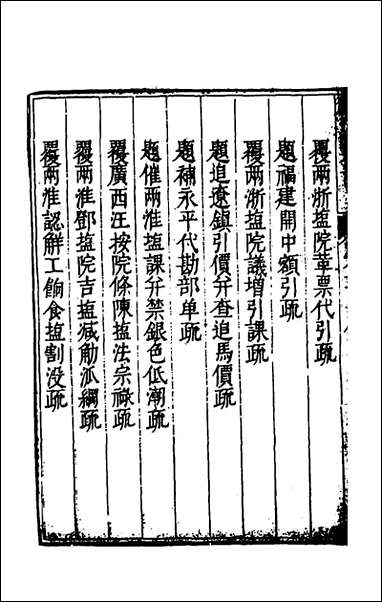 覆兩浙塩院革票代引疏
題福建開中額引疏
覆兩浙塩院議增引課疏
題追遼鎮引價幷查追馬價疏
題補永平代勘部单疏
題催兩淮塩課幷禁銀色低潮疏
覆廣西汪按院條陳塩法宗祿疏
覆兩淮鄧塩院吉塩减觔派綱疏
覆兩淮認觧工餉食塩割没疏